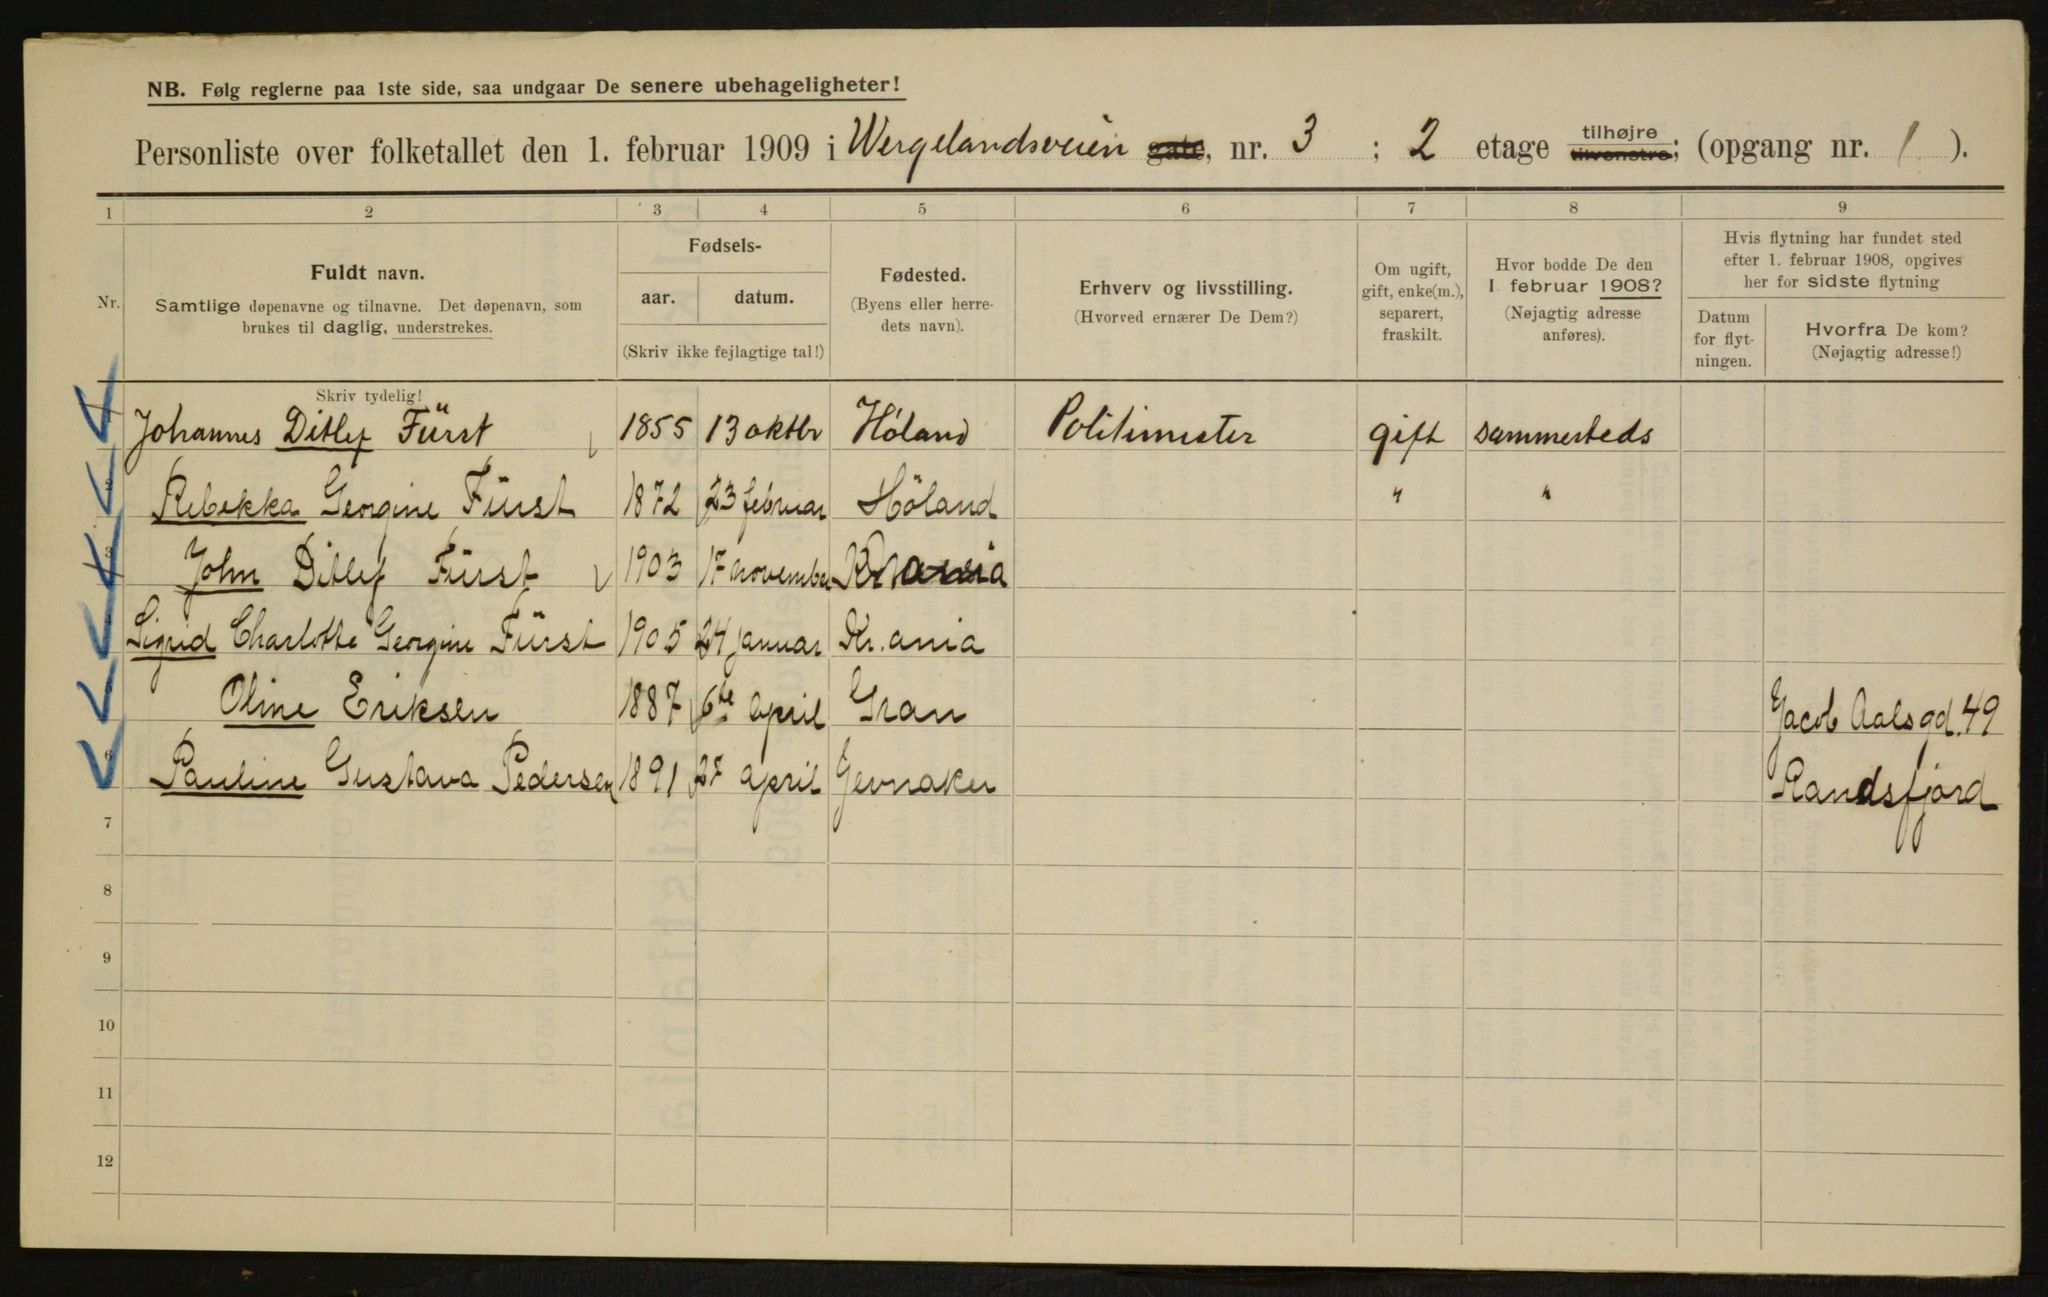 NB. Følg reglerne paa 1ste side, saa undgaar De senere ubehageligheter!
Personliste over folketallet den 1. februar 1909 i Wergelandsveien gate, nr. 3 ; 2 etage tilhøjre tilvenstre; (opgang nr. 1 ).
1 2 3 4 5 6 7 8 9
Nr.
Fuldt navn.
Samtlige døpenavne og tilnavne. Det døpenavn, som
brukes til daglig, understrekes.
Skriv tydelig!
Fødsels-
aar. datum.
(Skriv ikke fejlagtige tal!)
Fødested.
(Byens eller herre-
dets navn).
Erhverv og livsstilling.
(Hvorved ernærer De Dem?)
Om ugift,
gift, enke(m.),
separert,
fraskilt.
Hvor bodde De den
1. februar 1908?
(Nøjagtig adresse
anføres).
Hvis flytning har fundet sted
efter 1. februar 1908, opgives
her for sidste flytning
Datum
for flyt-
ningen.
Hvorfra De kom?
(Nøjagtig adresse!)
Johannes Ditlef Fürst 1855 13 oktbr Høland Politimester gift sammesteds
Rebekka Georgine Fürst 1872 23 februar Höland " "
John Ditlef Fürst 1903 17 november Kr.ania
Sigrid Charlotte Georgine Fürst 1905 24 januar Kr. ania
Oline Eriksen 1887 6te april Gran Jacob Aalsgd. 49
6 Pauline Gustava Pedersen 1891 27 april Jevnaker Randsfjord
7
8
9
10
11
12